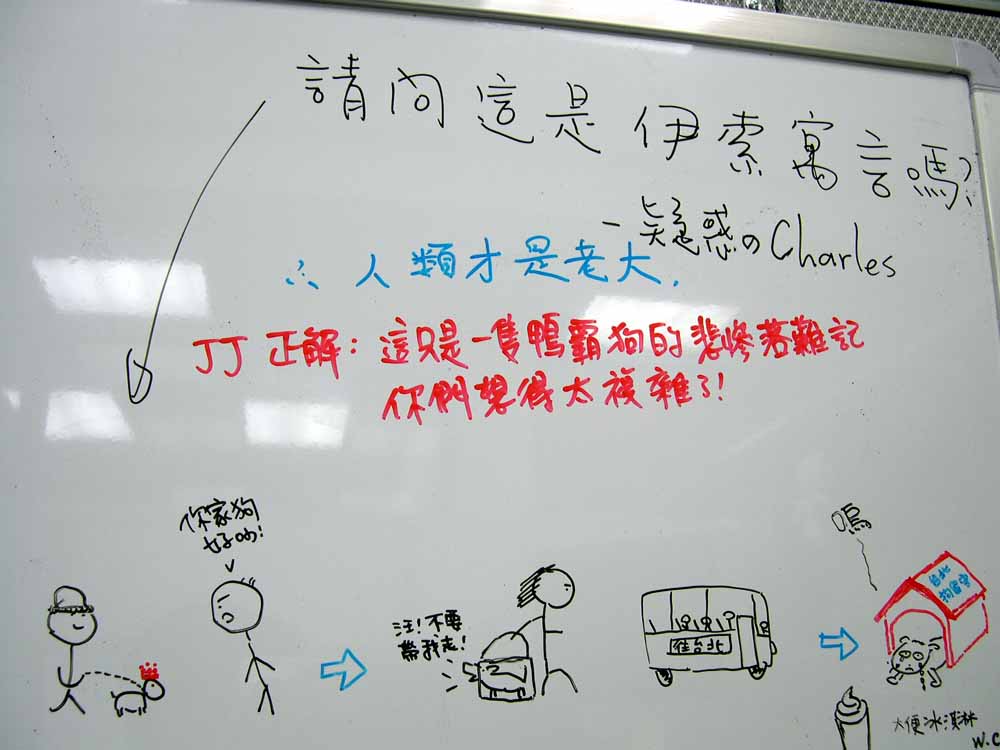 請問這是伊索寓言嗎?
-疑惑の Charles
∴人類才是老大.
JJ 正解:這只是一隻鴨霸狗的悲慘落難記
你們想得太複雜了!
你家狗
好吵!
汪!不要
帶我走!
往台北
嗚
台北
狗留室
大便冰淇淋
W.C